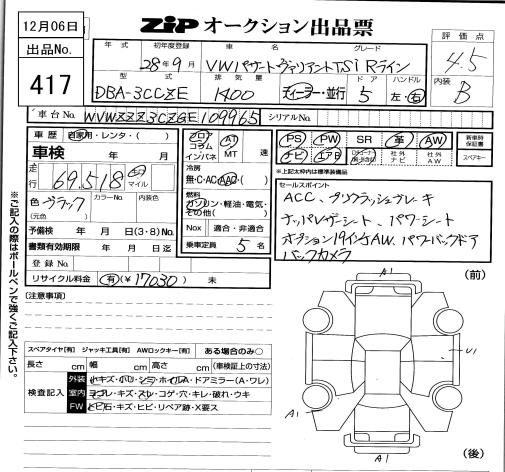 12月06日
出品No.
417
ZIP オークション出品票
年式 初年度登録 車名 グレード
28年9月 VWパサートヴァリアントTSi Rライン
評価点
4.5
内装
B
型式 排気量 ドア ハンドル
DBA-3CCZE 1400 ディーラー・並行 5 左・右
車台No. WVWZZZ3CZGE109965 シリアルNo.
車歴 自家用・レンタ・( )
車検 年 月
走行 69,518 キロ マイル
色 ブラック カラーNo. 内装色
(元色)
予備検 年 月 日(3・8)No.
書類有効期限 年 月 日迄
登録No.
リサイクル料金 有(¥17030) 未
フロア コラム インパネ AT MT 速
冷房
無・C・AC・AAC・( )
燃料
ガソリン・軽油・電気・その他( )
Nox 適合・非適合
乗車定員 5名
PS PW SR 革 AW 新車時保証書
ナビ エアB 社外ナビ 社外AW スペアキー
※上記太枠内は標準装備品
セールスポイント
ACC、プリクラッシュブレーキ
ナッパレザーシート、パワーシート
オプション19インチAW、パワーバックドア
バックカメラ
※ご記入の際はボールペンで強くご記入下さい。
[注意事項]
スペアタイヤ[有] ジャッキ工具[有] AWロックキー[有] ある場合のみ○
長さ cm 幅 cm 高さ cm (車検証上の寸法)
検査記入
外装 小キズ・ホリ・シミ・ホイルA・ドアミラー(A・ワレ)
室内 ヨゴレ・キズ・スレ・コゲ・穴・キレ・破れ・ウキ
FW トビ石・キズ・ヒビ・リペア跡・X要ス
A1
(前)
U1
A1
A1
(後)